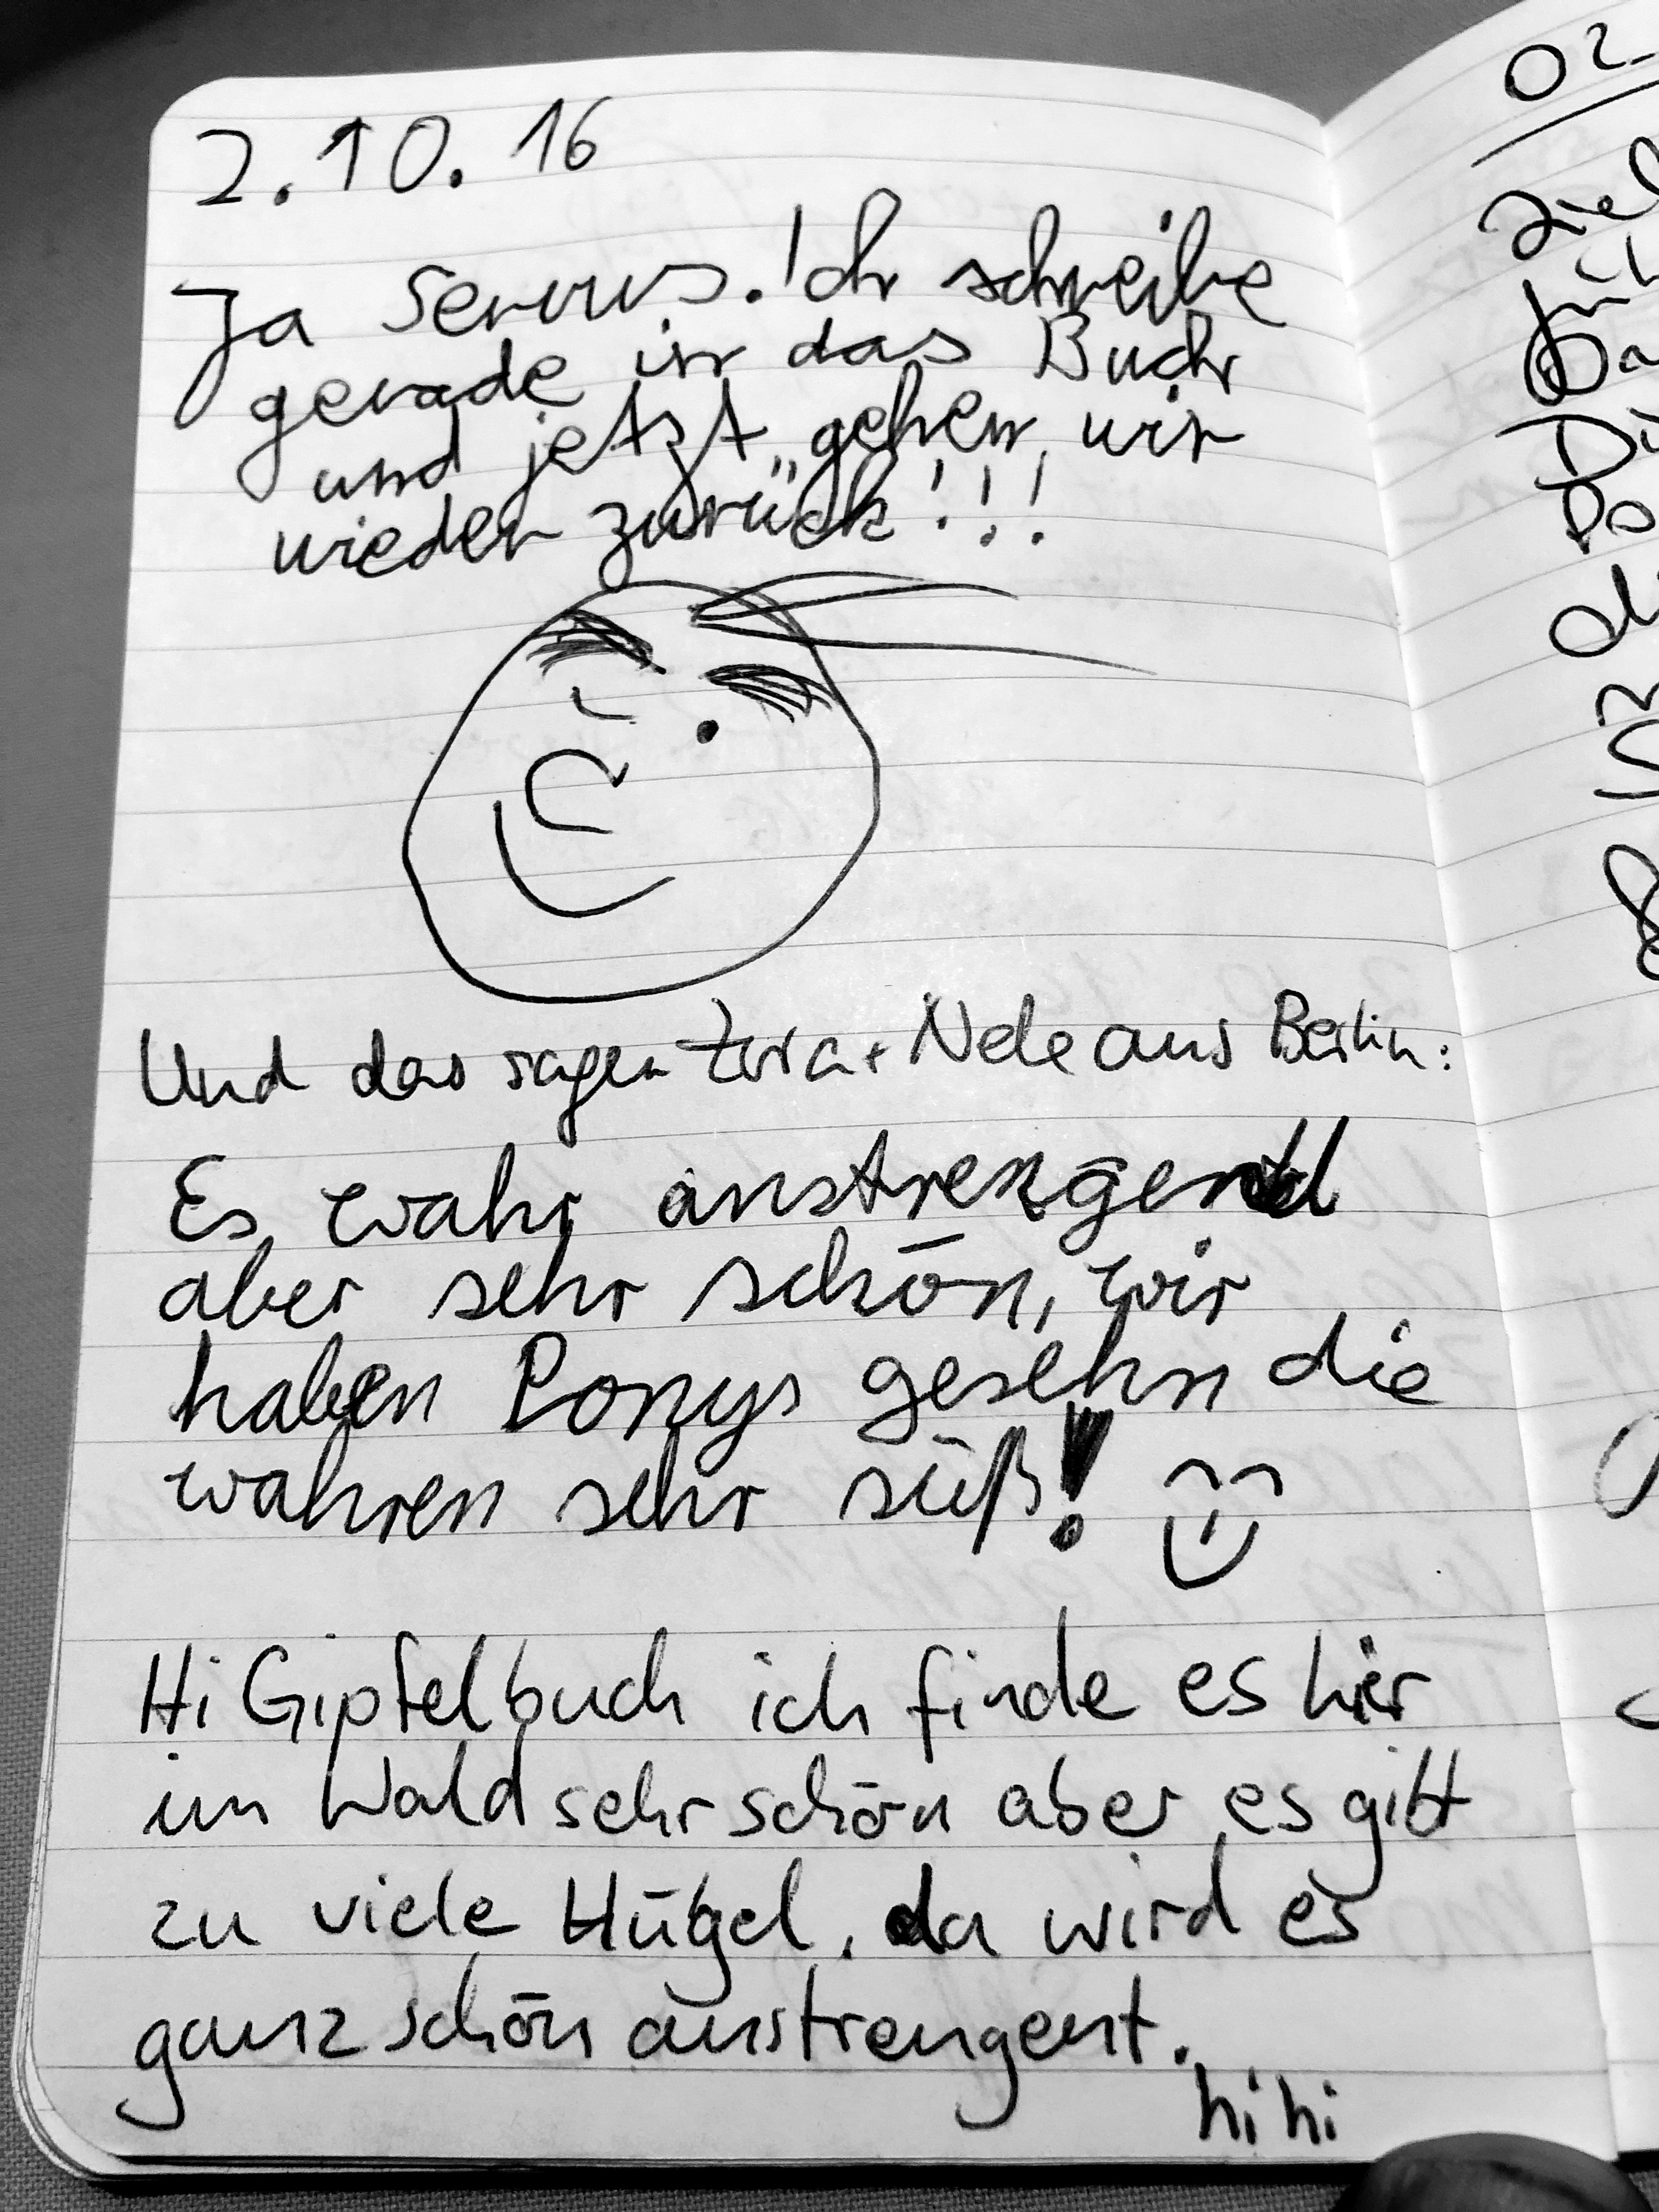 2.10.16
Ja Servus. Ich schreibe
gerade in das Buch
und jetzt gehen wir
wieder zurück!!!
Und das sagen Zora + Nele aus Berlin:
Es wahr anstrengend
aber sehr schön, wir
haben Ponys gesehn die
wahren sehr süß!
Hi Gipfelbuch ich finde es hier
im Wald sehr schön aber es gibt
zu viele Hügel, da wird es
ganz schön anstrengent.
hihi
02